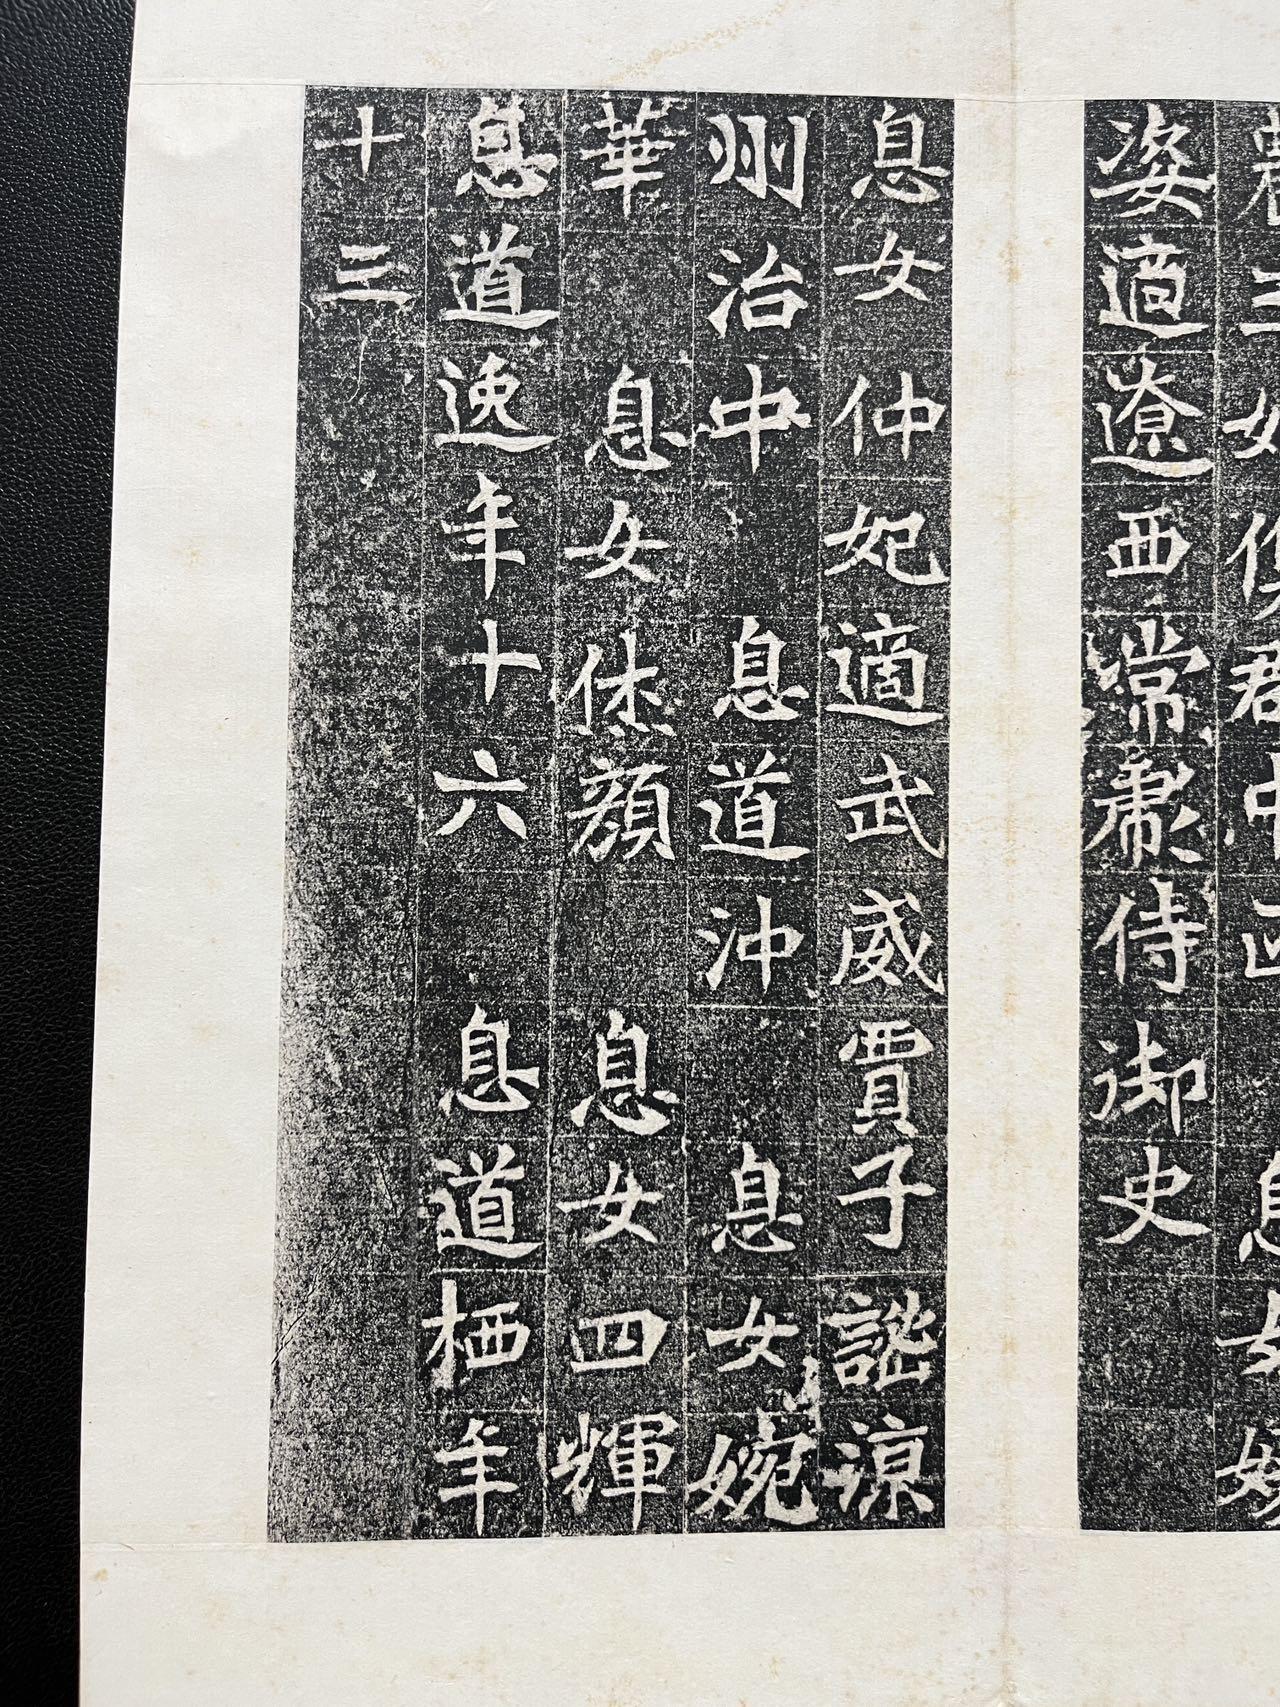 姿適遼西常彪侍御史
息女仲妃適武威賈子諧涼
州治中 息道沖 息女婉
華 息女烋顏 息女四輝
息道逸年十六 息道栖年
十三